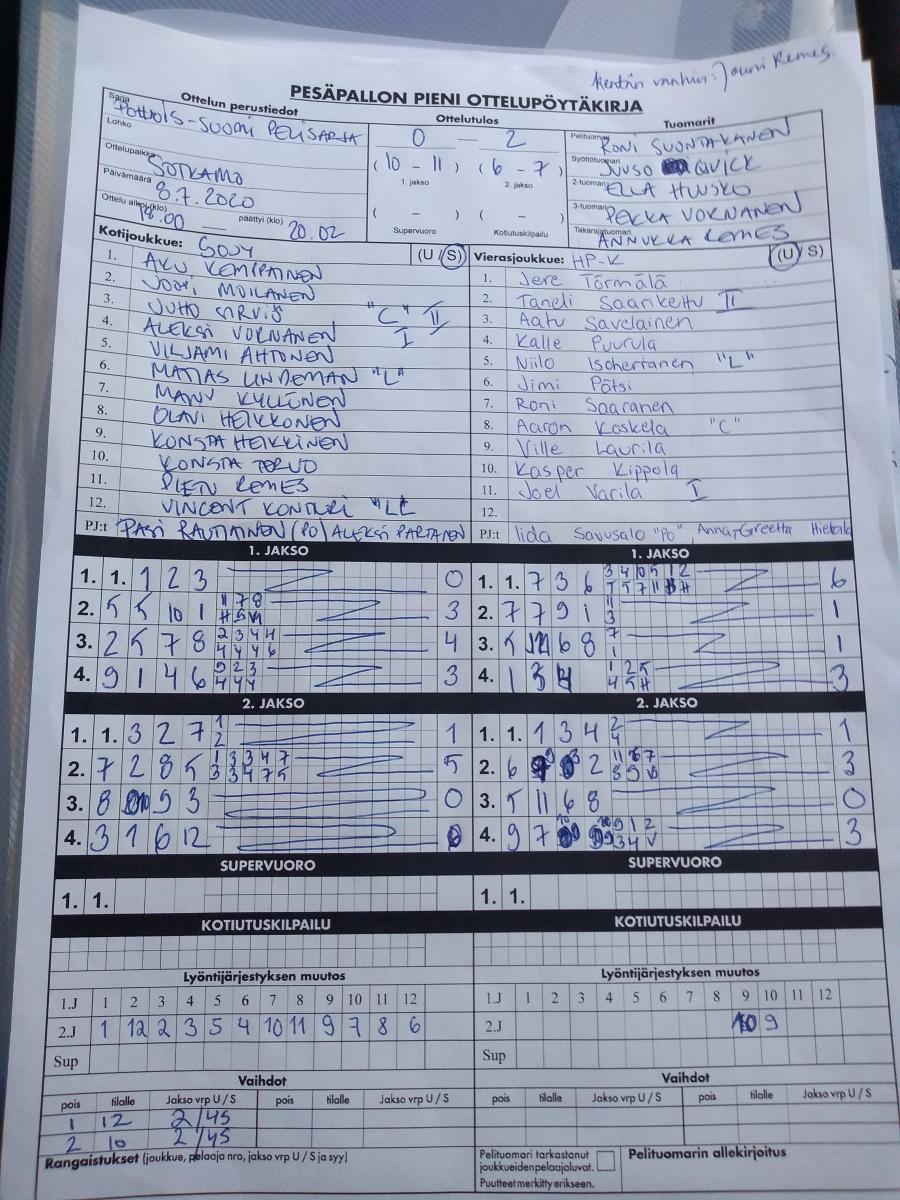 Kentän vanhin: Jouni Remes
PESÄPALLON PIENI OTTELUPÖYTÄKIRJA
Sarja Ottelun perustiedot Ottelutulos Tuomarit
POHJOIS-SUOMI PELISARJA 0 — 2 Pelituomari RONI SUONTAKANEN
Lohko (10 - 11) (6 - 7) Syöttötuomari JUUSO QVICK
Ottelupaikka SOTKAMO 1. jakso 2. jakso 2-tuomari ELLA HUUSKO
Päivämäärä 8.7.2020 ( - ) ( - ) 3-tuomari PEKKA VORNANEN
Ottelu alkoi (klo) 18.00 — päättyi (klo) 20.02 Supervuoro Kotiutuskilpailu Takarajatuomari ANNUKKA REMES
Kotijoukkue: SOJY (U/S)
1. AKU KEMPPAINEN
2. JOONI MOILANEN
3. JUHO SIRVIÖ "C" II
4. ALEKSI VORNANEN I
5. VILJAMI AHTONEN
6. MATIAS LINDEMAN "L"
7. MANU KYLLÖNEN
8. OLAVI HEIKKONEN
9. KONSTA HEIKKINEN
10. KONSTA TERVO
11. PIETU REMES
12. VINCENT KONTURI "L"
PJ:t PASI RAUTIAINEN (PO) ALEKSI PARTANEN
Vierasjoukkue: HP-K (U/S)
1. Jere Törmälä
2. Taneli Saarikettu II
3. Aatu Savelainen
4. Kalle Puurula
5. Niilo Ischertanen "L"
6. Jimi Pätsi
7. Roni Saaranen
8. Aaron Kaskela "C"
9. Ville Laurila
10. Kasper Kippola
11. Joel Varila I
12.
PJ:t Iida Savusalo "PO", Anna-Greetta
1. JAKSO
1. 1. 1 2 3 0
2. 5 5 10 1 3
3. 2 5 7 8 2 3 4 4 4
4. 9 1 4 6 3
1. JAKSO
1. 1. 7 3 6 6
2. 7 7 9 1 1
3. 6 8 1
4. 1 3
2. JAKSO
1. 1. 3 2 7 1
2. 7 2 8 5 1 3 3 4 7 5
3 3 4 7 5
3. 8 9 3 0
4. 3 1 6 12
2. JAKSO
1. 1. 1 3 4 2 1
2. 6 2 3
3. 5 11 6 8 0
4. 9 7 3
SUPERVUORO SUPERVUORO
1. 1. 1. 1.
KOTIUTUSKILPAILU KOTIUTUSKILPAILU
Lyöntijärjestyksen muutos
1.J 1 2 3 4 5 6 7 8 9 10 11 12
2.J 1 12 2 3 5 4 10 11 9 7 8 6
Sup
Lyöntijärjestyksen muutos
1.J 1 2 3 4 5 6 7 8 9 10 11 12
2.J 10 9
Sup
Vaihdot
pois tilalle Jakso vrp U / S pois tilalle Jakso vrp U / S
1 12 2/4S
2 10 2/4S
Vaihdot
pois tilalle Jakso vrp U / S pois tilalle Jakso vrp U / S
Rangaistukset (joukkue, pelaaja nro, jakso vrp U / S ja syy)
Pelituomari tarkastanut
joukkueiden pelaajaluvat.
Puutteet merkitty erikseen.
Pelituomarin allekirjoitus